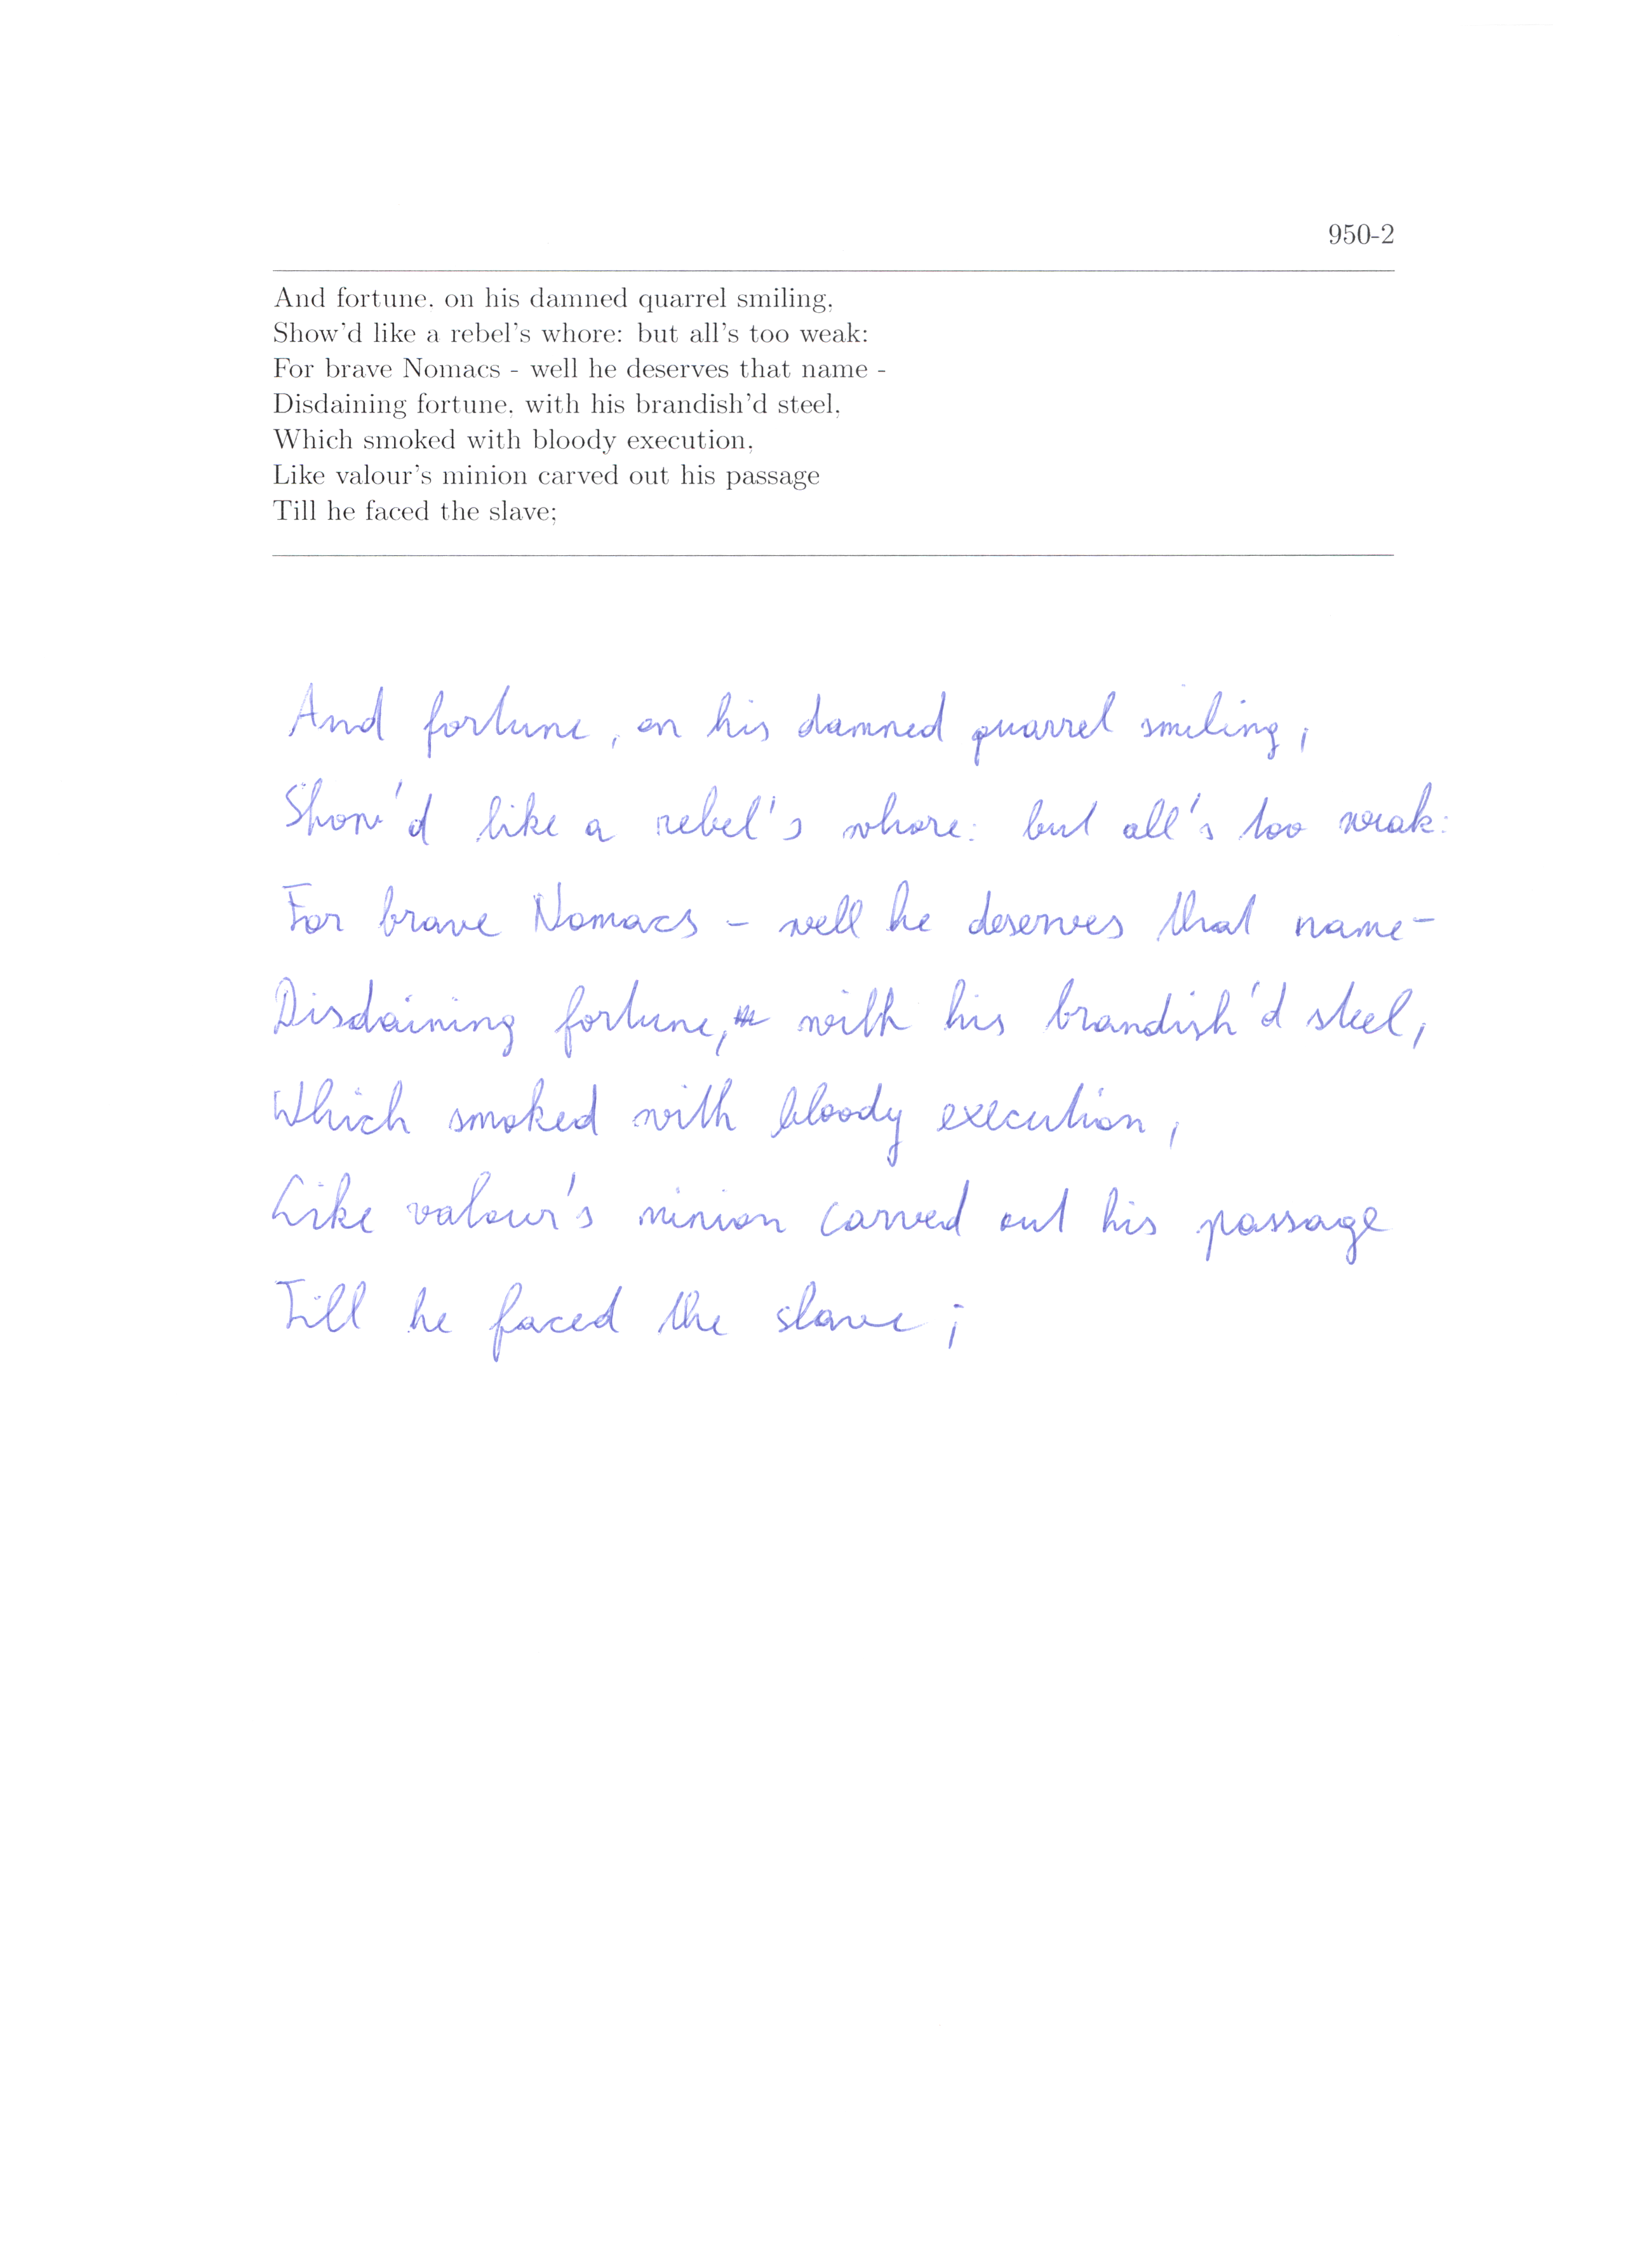 950-2
And fortune, on his damned quarrel smiling,
Show'd like a rebel's whore: but all's too weak:
For brave Nomacs - well he deserves that name -
Disdaining fortune, with his brandish'd steel,
Which smoked with bloody execution,
Like valour's minion carved out his passage
Till he faced the slave;
And fortune, on his damned quarrel smiling,
Show'd like a rebel's whore: but all's too weak:
For brave Nomacs - well he deserves that name -
Disdaining fortune, with his brandish'd steel,
Which smoked with bloody execution,
Like valour's minion carved out his passage
Till he faced the slave;